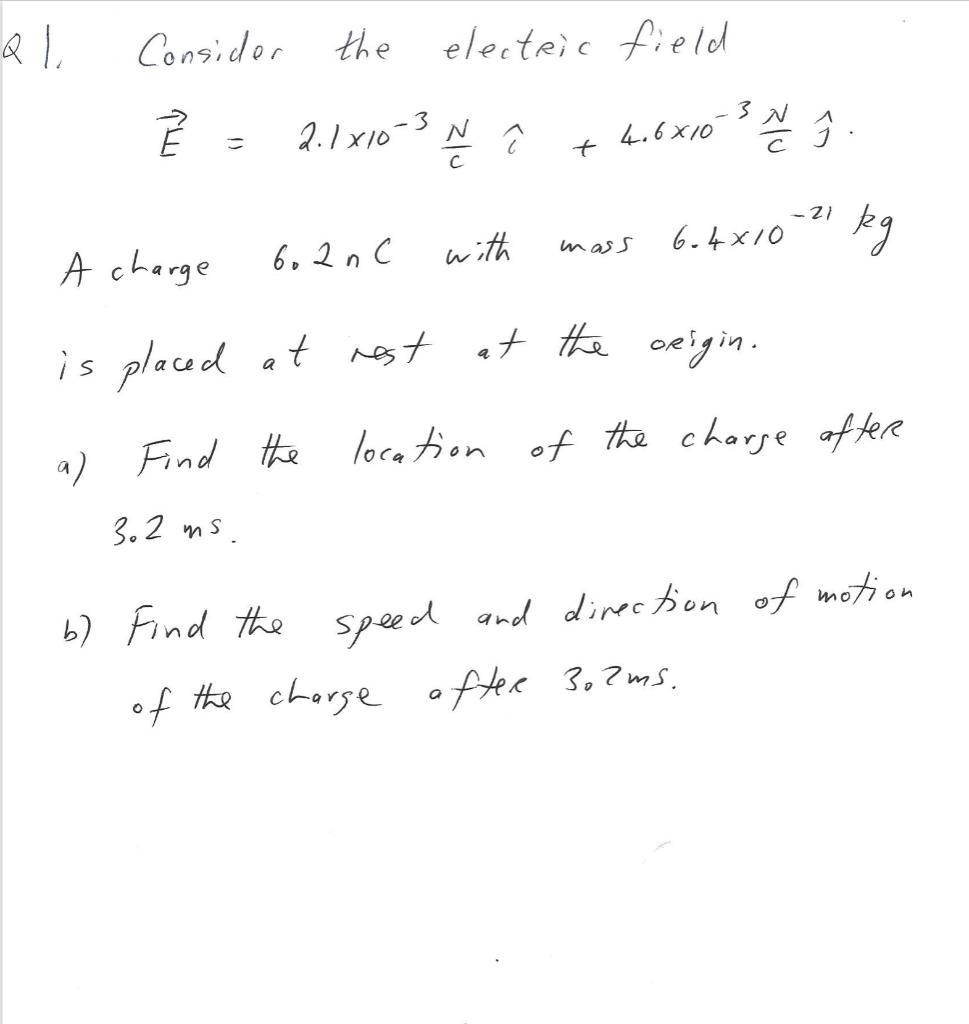 Q 1. Consider the electric field
E⃗ = 2.1 x10⁻³ N/C î + 4.6 x10⁻³ N/C ĵ.
A charge 6.2 n C with mass 6.4 x10⁻²¹ kg
is placed at rest at the origin.
a) Find the location of the charge after
3.2 ms.
b) Find the speed and direction of motion
of the charge after 3.2 ms.